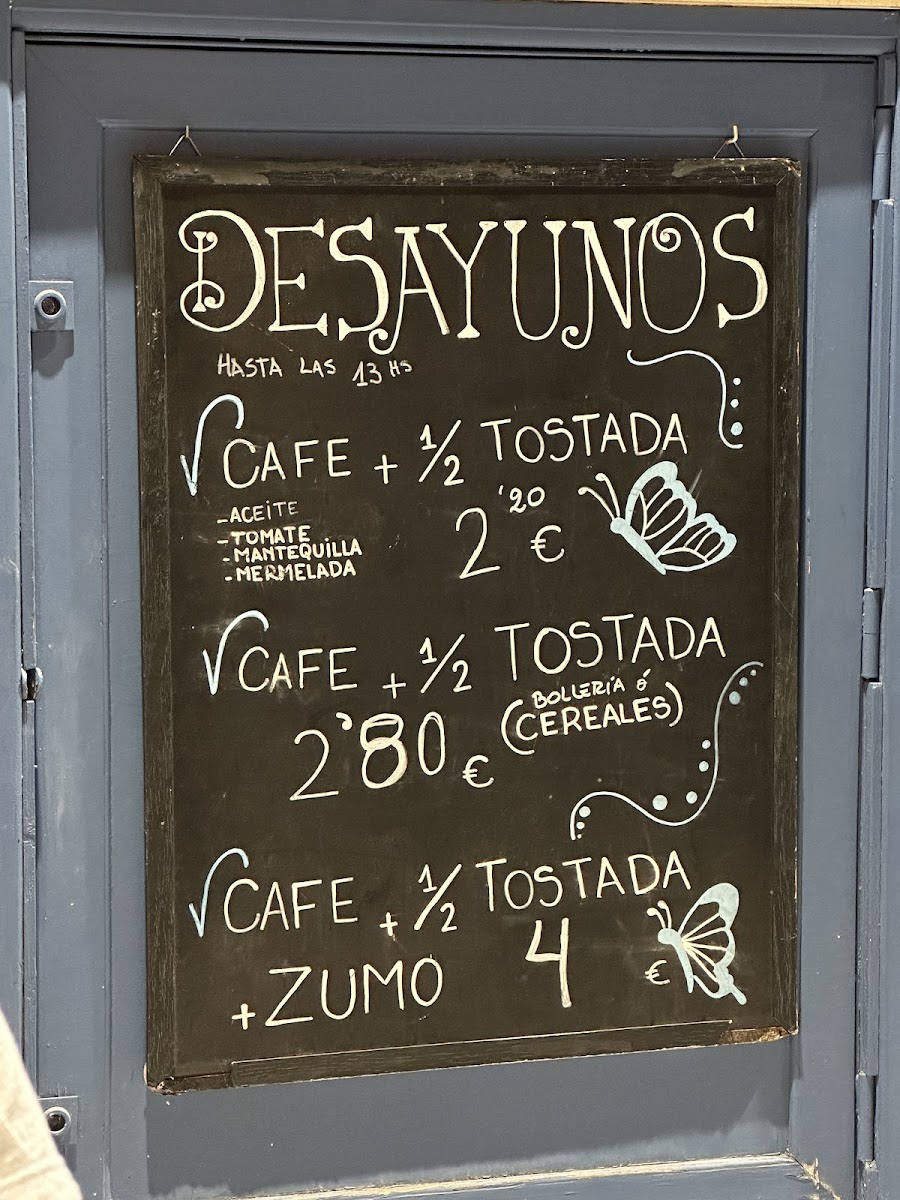 DESAYUNOS
HASTA LAS 13 HS
CAFE + 1/2 TOSTADA
- ACEITE
- TOMATE
- MANTEQUILLA
- MERMELADA
2'20 €
CAFE + 1/2 TOSTADA
(BOLLERÍA ó
CEREALES)
2'80 €
CAFE + 1/2 TOSTADA
+ ZUMO 4 €